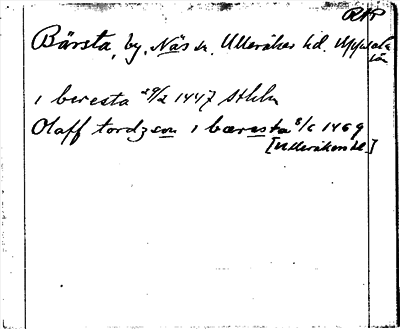 RAP
Bärsta, by, Näs sn. Ulleråkers hd. Uppsala
län
i beresta 29/2 1447 Sthlm
Olaff tordzson i bæresta 8/6 1469
[Ulleråkers hd.]